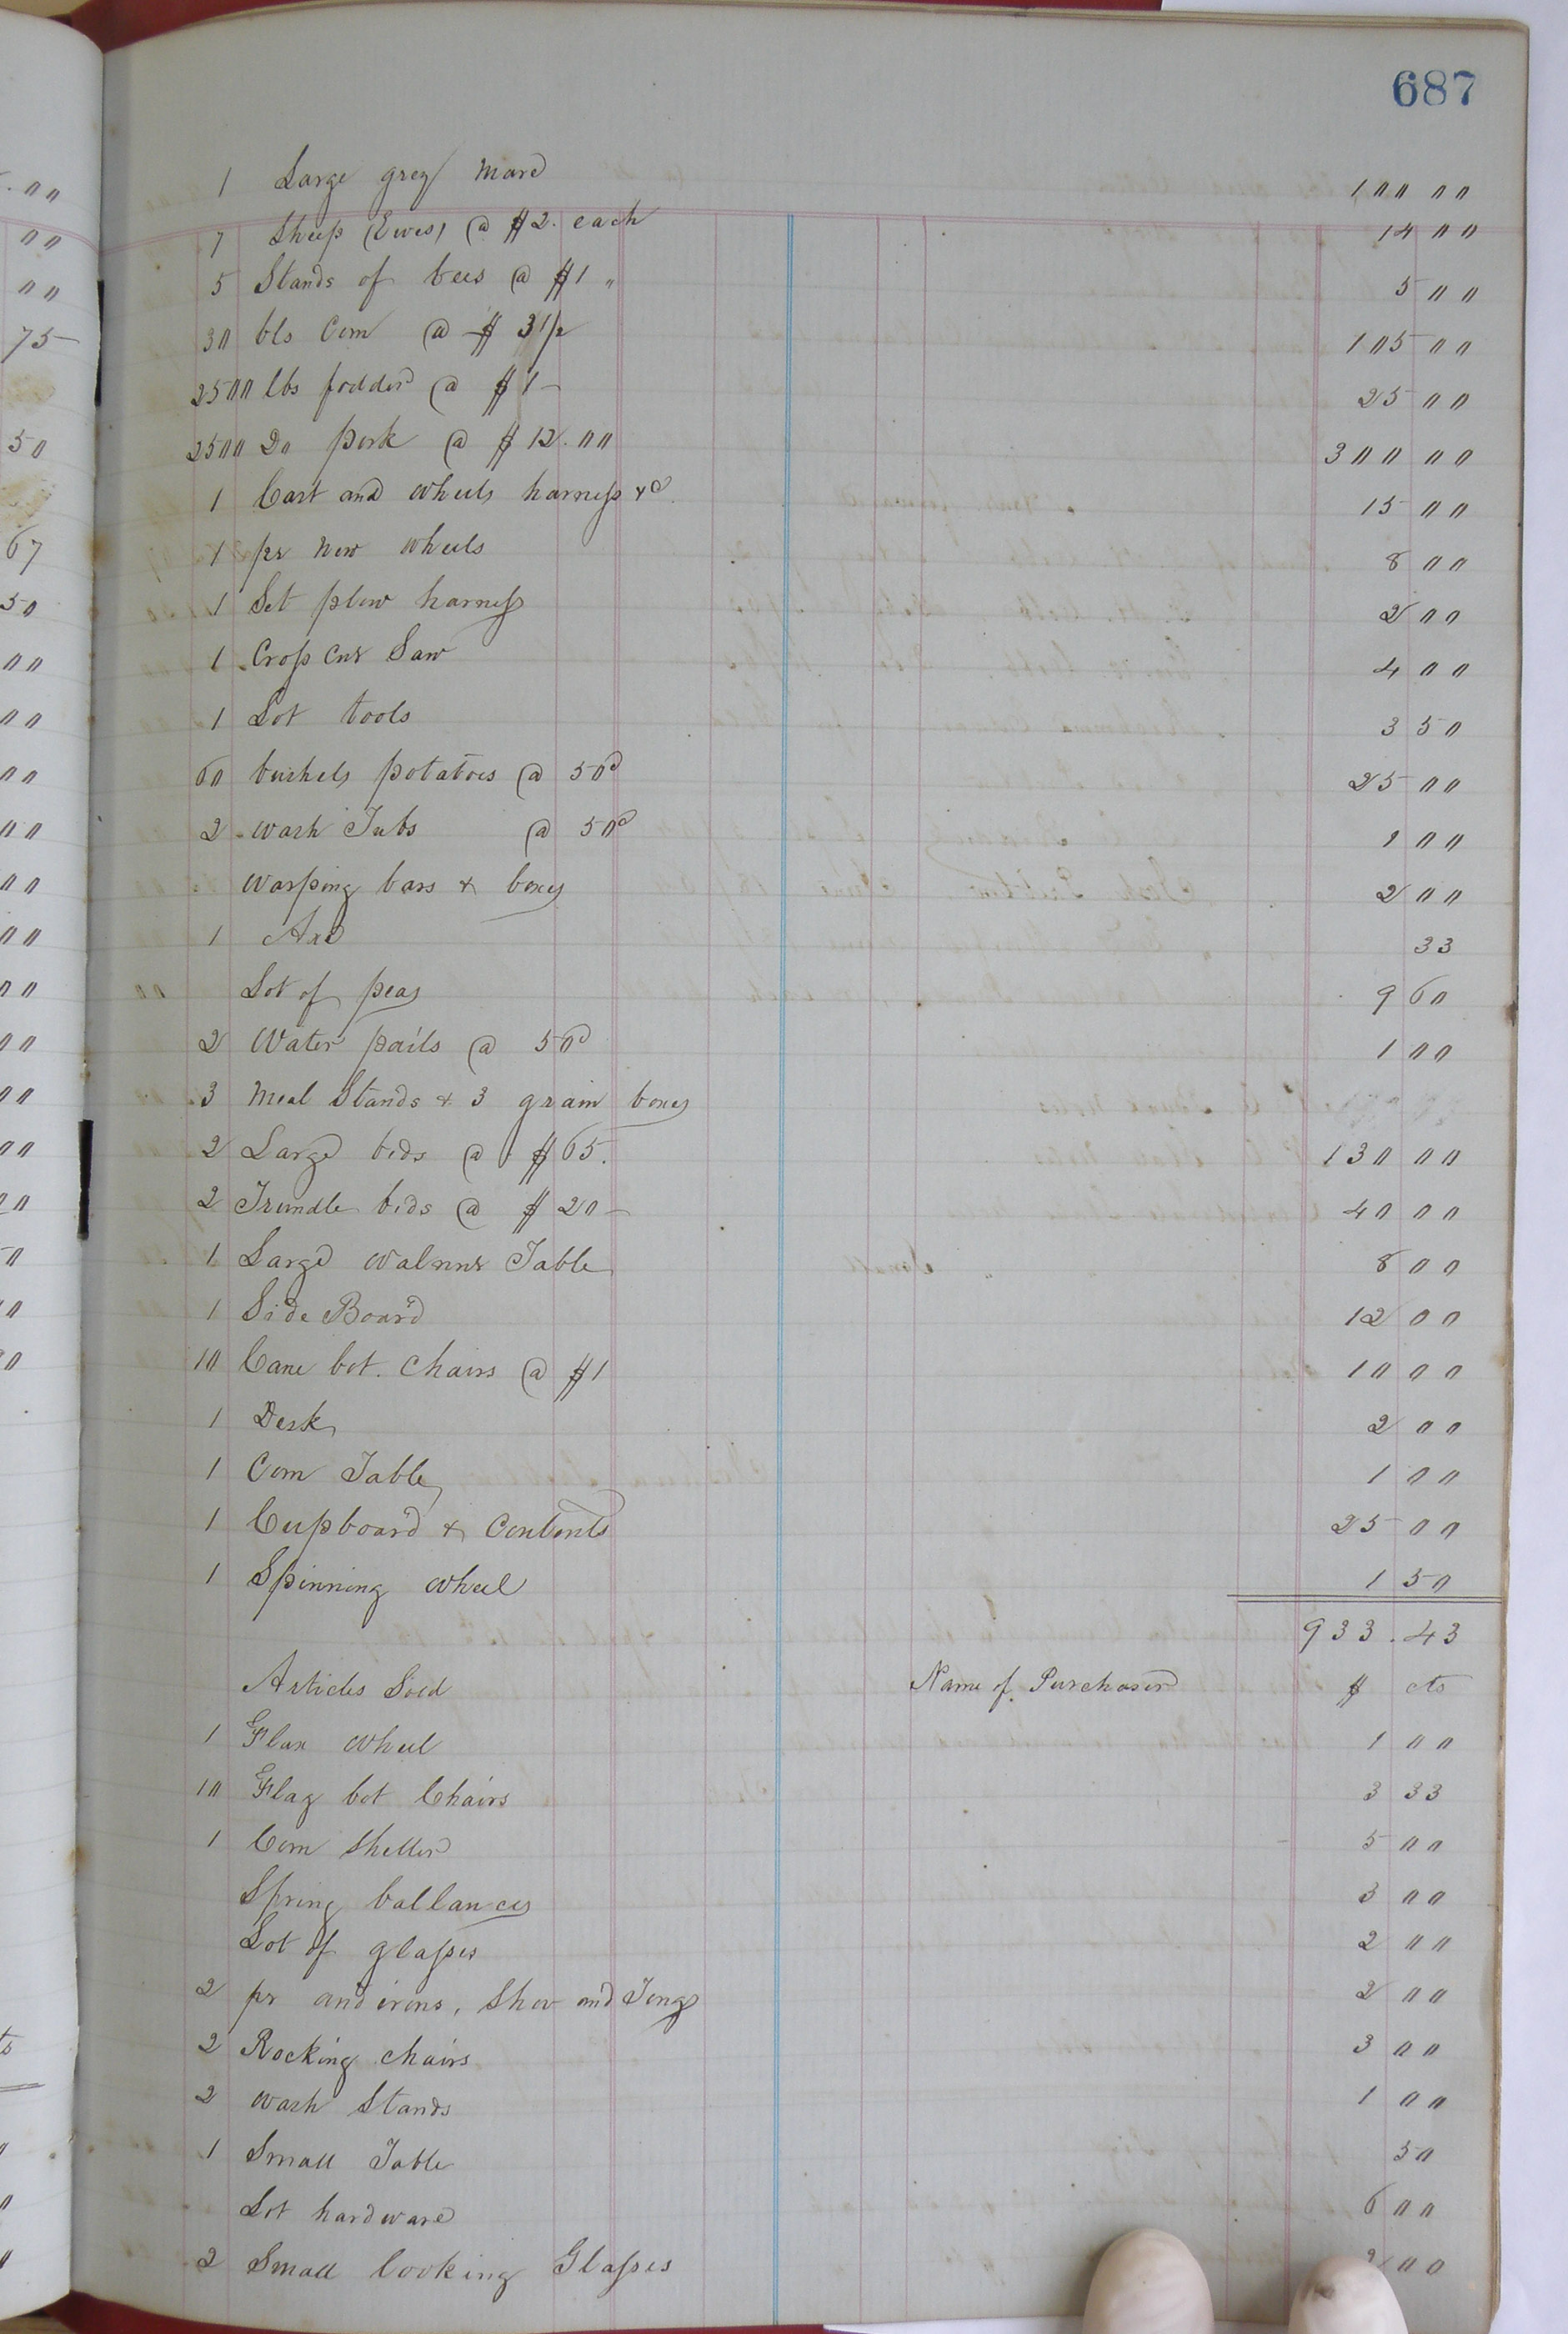 687
1 Large grey Mare 100 00
7 Sheep (Ewes) @ $2. each 14 00
5 Stands of bees @ $1 " 5 00
30 bls Corn @ $ 3 1/2 105 00
2500 lbs fodder @ $1- 25 00
2500 Do pork @ $12.00 300 00
1 Cart and wheels harness &c 15 00
1 pr New wheels 8 00
1 Set plow harness 2 00
1 Cross Cut Saw 4 00
1 Lot tools 3 50
60 bushels potatoes @ 50c 25 00
2 Wash Tubs @ 50c 1 00
Warping bars & boxes 2 00
1 Axe 33
Lot of peas 9 60
2 Water pails @ 50c 1 00
3 Meal Stands & 3 grain boxes
2 Large beds @ $65. 130 00
2 Trundle beds @ $20- 40 00
1 Large Walnut Table 8 00
1 Side Board 12 00
10 Cane bot. Chairs @ $1 10 00
1 Desk 2 00
1 Com Table 1 00
1 Cupboard & Contents 25 00
1 Spinning Wheel 1 50
933.43
Articles Sold Name of Purchaser $ cts
1 Flax Wheel 1 00
10 Flag bot Chairs 3 33
1 Corn Sheller 5 00
Spring ballances 3 00
Lot of glasses 2 00
2 pr andirons, Shov and Tongs 2 00
2 Rocking chairs 3 00
2 Wash Stands 1 00
1 Small Table 50
Lot hardware 6 00
2 Small looking Glasses 2 00
00
00
00
75
50
67
50
00
00
00
00
00
00
00
00
00
00